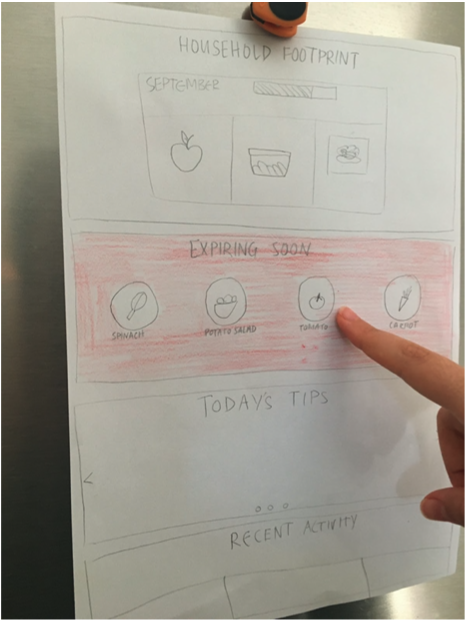 HOUSEHOLD FOOTPRINT
SEPTEMBER
EXPIRING SOON
SPINACH
POTATO SALAD
TOMATO
CARROT
TODAY'S TIPS
RECENT ACTIVITY